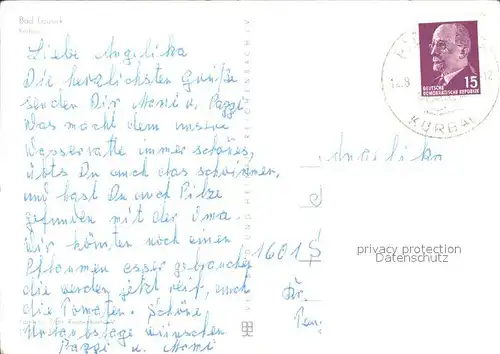 Bad Lausick
Liebe Angelika
Die herzlichsten Grüße
senden Dir Mami u. Pappi
Was macht denn unsere
Wasserratte immer schönes,
übts Du auch das schwimmen,
und hast Du auch Pilze
gefunden mit der Oma
Wir könnten noch einen
Pflaumen esser gebrauchen
die werden jetzt reif, auch
die Tomaten. Schöne
Urlaubstage wünschen
Pappi u. Mami
DEUTSCHE
DEMOKRATISCHE REPUBLIK
15
KURBAD
Angelika
1601 S
privacy protection
Datenschutz